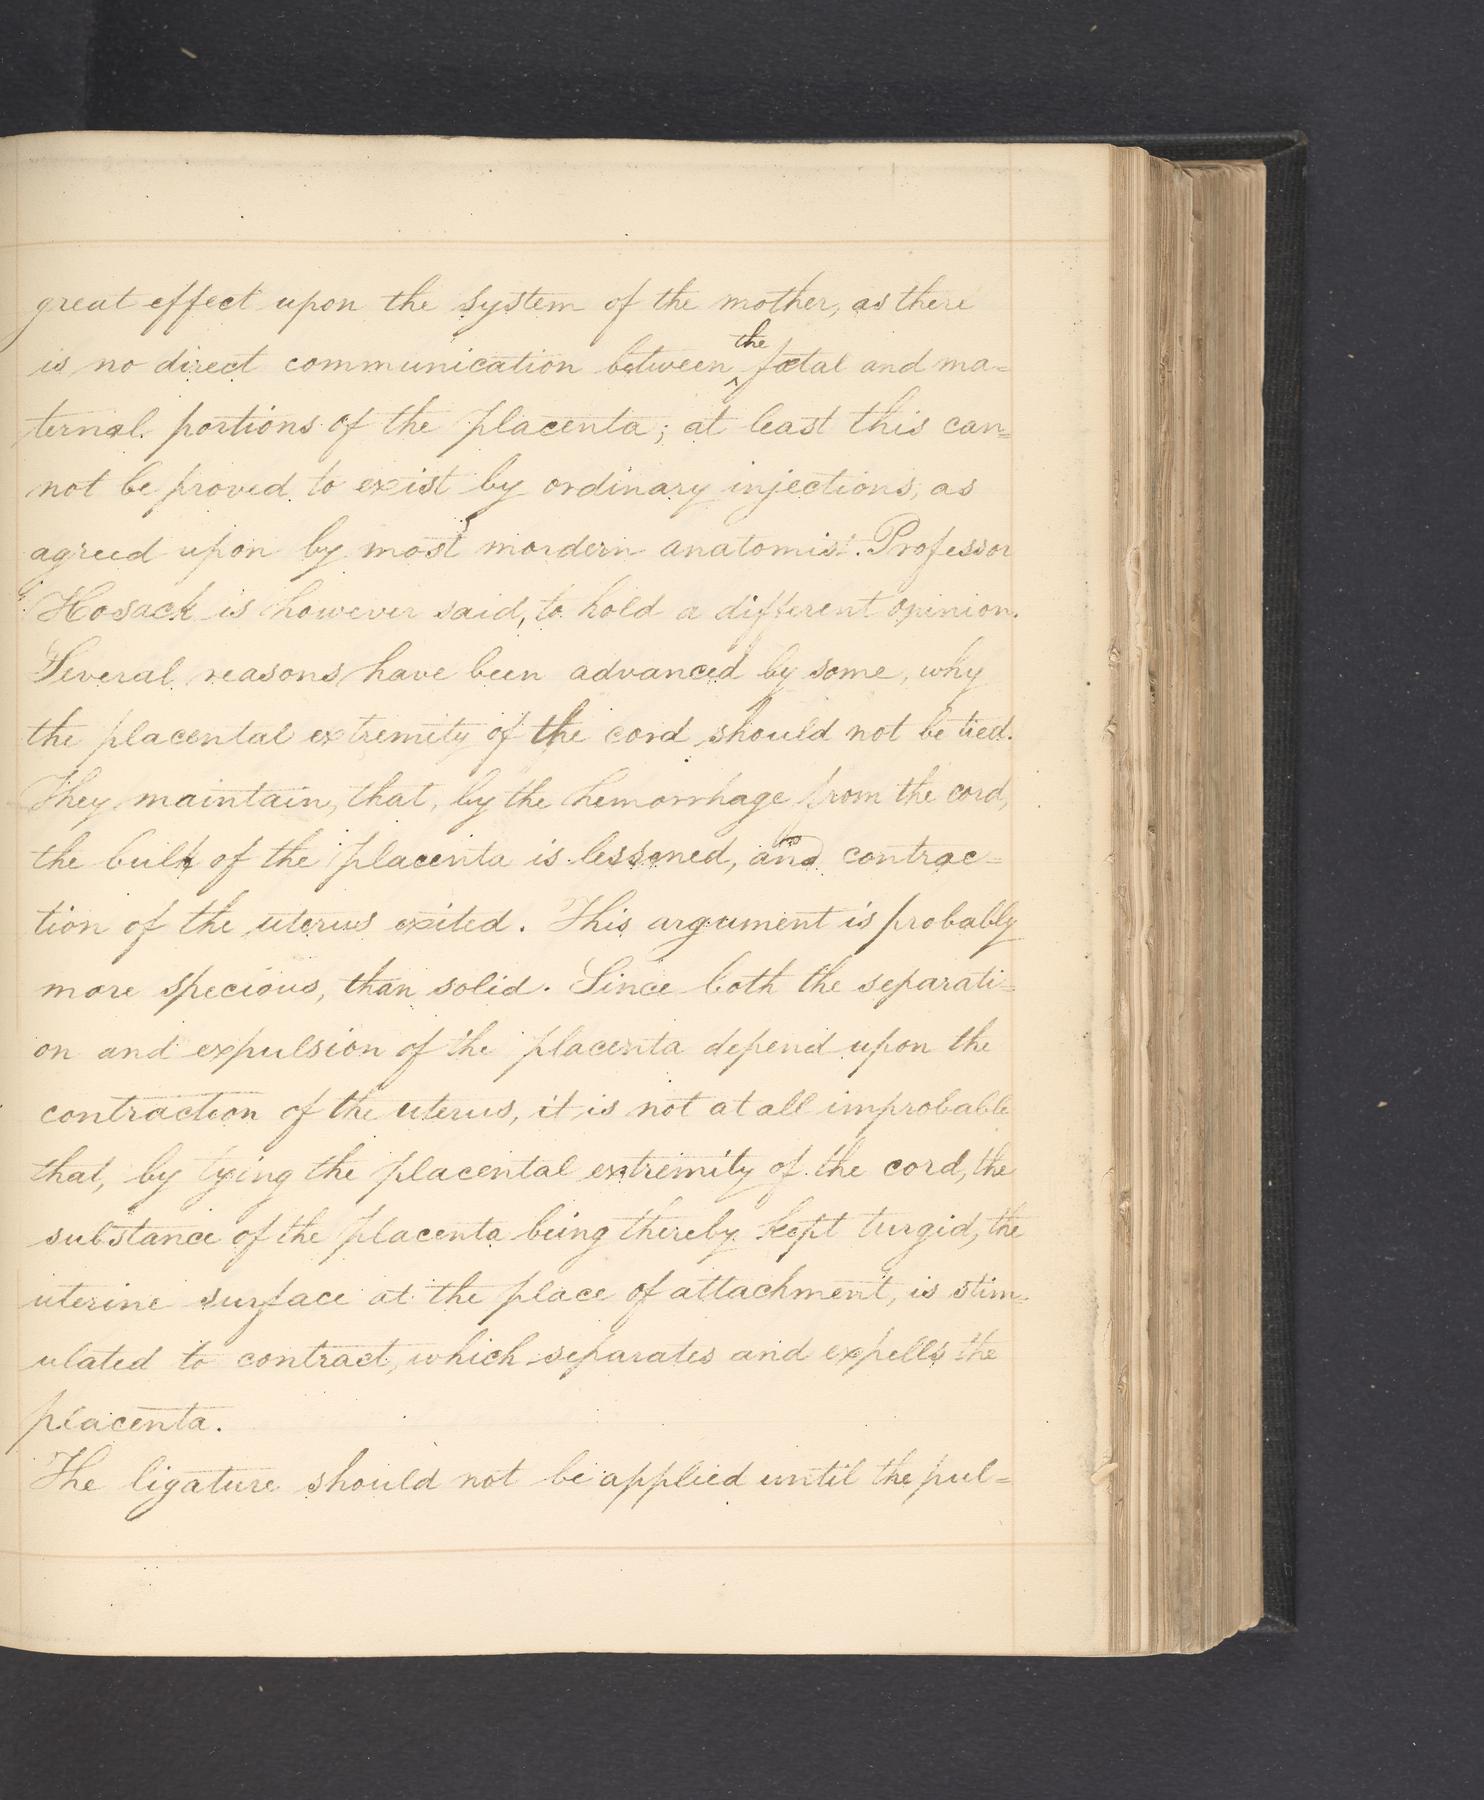 great effect upon the system of the mother, as there
is no direct communication between the fœtal and ma=
ternal portions of the placenta; at least this can=
not be proved to exist by ordinary injections, as
agreed upon by most mordern anatomist. Professor
Hosack is however said, to hold a different opinion.
Several reasons have been advanced by some, why
the placental extremity of the cord should not be tied.
They maintain, that, by the hemorrhage from the cord,
the bulk of the placenta is lessened, and contrac=
tion of the uterus exited. This argument is probably
more specious, than solid. Since both the separati=
on and expulsion of the placenta depend upon the
contraction of the uterus, it is not at all improbable
that, by tying the placental extremity of the cord, the
substance of the placenta being thereby kept turgid, the
uterine surface at the place of attachment, is stim=
ulated to contract, which separates and expells the
placenta.
The ligature should not be applied until the pul=